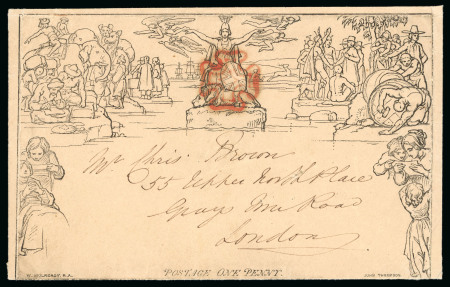 Mr Chris. Brown
55 Upper North Place
Grays Inn Road
London
POSTAGE ONE PENNY.
W. MULREADY. R.A.
JOHN THOMPSON